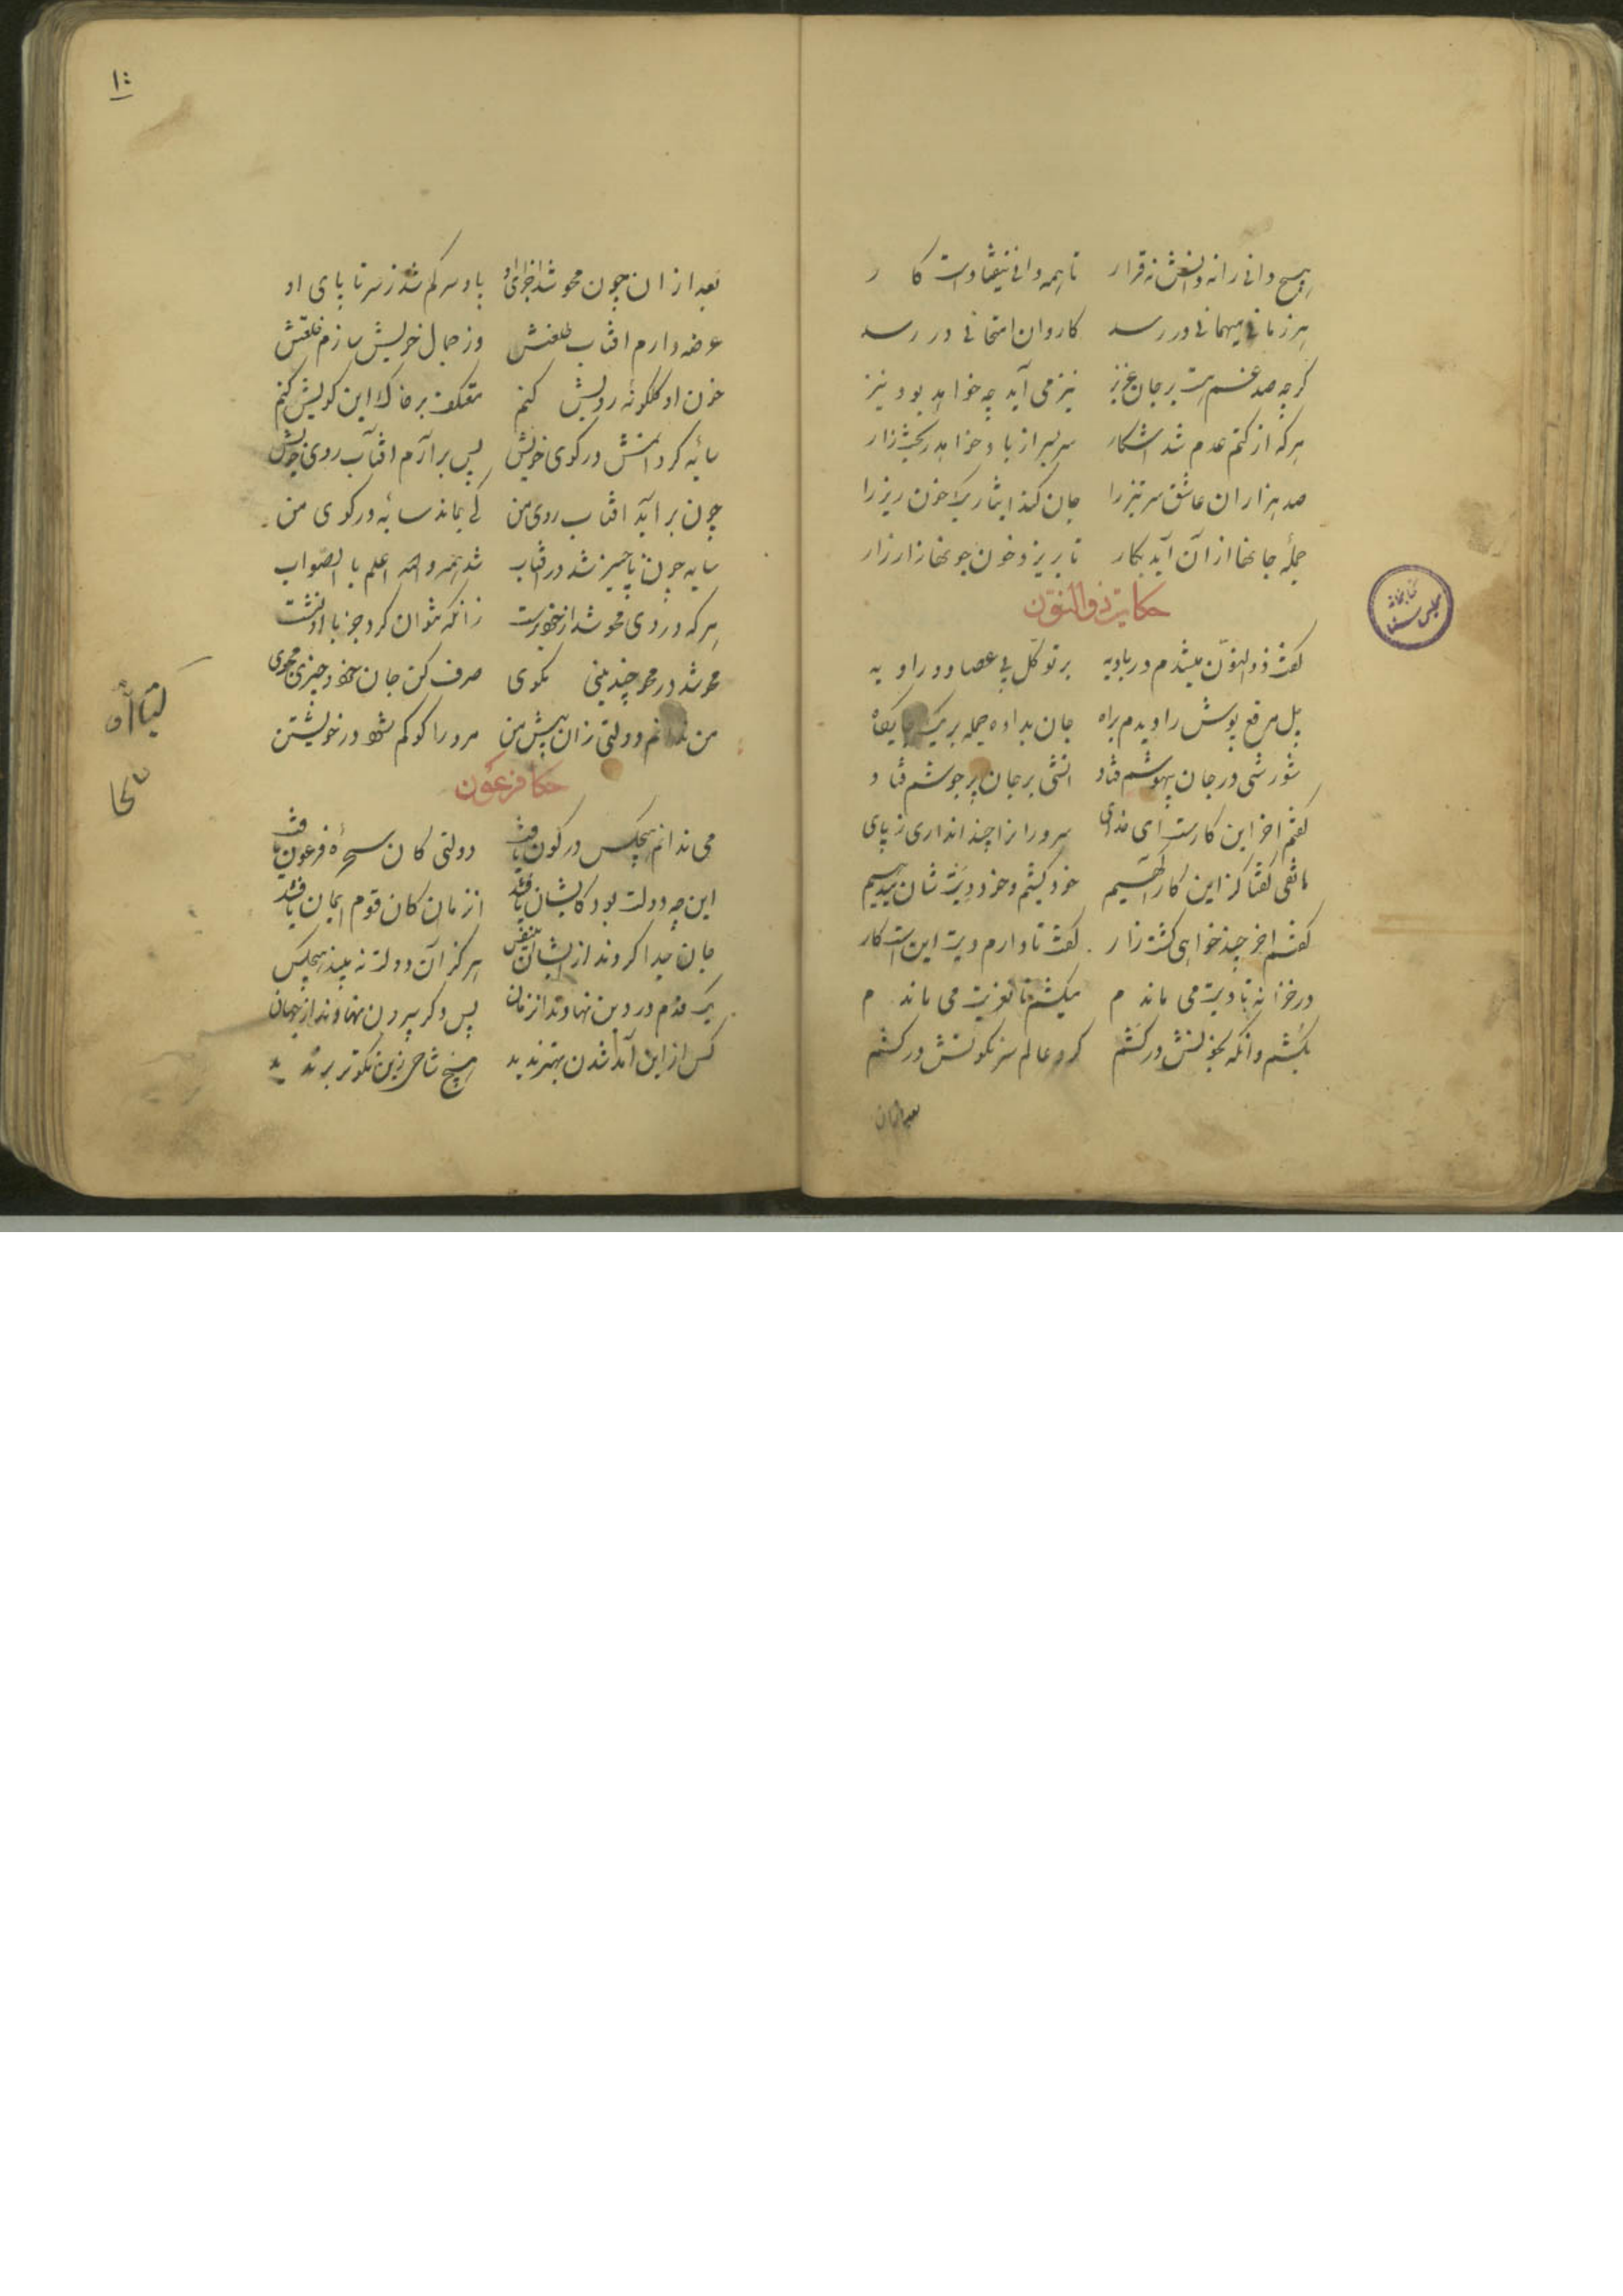 هیچ دانی را نه دانش نه قرار تا همه دانی نیفتادست کار
هر زمانی میهمانی در رسد کاروان امتحانی در رسد
گرچه صد غم هست بر جان عزیز نیز می آید چه خواهد بود نیز
هرکه از کتم عدم شد اشکار سر بسر از باد خواهد ریخت زار
صد هزاران عاشق سر تیز را جان کند ایثار یک خون ریز را
جملهٔ جانها از آن آید بکار تا بریزد خون جونها زار زار
حکایت ذوالنون
گفت ذوالنون میشدم در بادیه بر توکل بی عصا و راویه
چل مرقع پوش را دیدم براه جان بداده جمله بر یک جایگاه
شورشی در جان بیهوشم فتاد اتشی بر جان پر جوشم فتاد
گفتم اخر این کارست ای خدای سرورانرا چند اندازی ز پای
هاتفی گفتا کز این کار آگهیم خود کشیم و خود دیت شان میدهیم
گفتم اخر چند خواهی کشت زار گفت تا دارم دیت این است کار
در خزانه تا دیت می ماندم میکشم تا تعزیت می ماندم
بکشم وانگه بخونش در کشم گرد عالم سرنگونش در کشم
بعد ازان
۱۰
بعد از ان چون محو شد اجزای او پا و سر گم شد ز سر تا پای او
عرضه دارم افتاب طلعتش وز جمال خویش سازم خلعتش
خون او گلگونه رویش کنم معتکف بر خاک این کویش کنم
سایه گردانمش در کوی خویش پس بر آرم افتاب روی خویش
چون بر آید افتاب روی من کی بماند سایه در کوی من
سایه چون ناچیز شد در افتاب شد همه والله اعلم با الصواب
هرکه در وی محو شد از خود برست زانکه نتوان کرد جز با او نشست
محو شد در محو چندینی مگوی صرف کن جان خود و چیزی مجوی
من ندانم دولتی زان پیش من مرد را کو گم شود در خویشتن
حکا فرعون
می ندانم هیچکس در کون یافت دولتی کان سحرهٔ فرعون یافت
این چه دولت بود کایشان یافتند انزمان کان قوم ایمان یافتند
جان جدا کردند از ایشان آن نفس هرگز آن دولت نه بیند هیچکس
یک قدم در دین نهادند انزمان پس دگر بیرون نهادند از جهان
کس از این آمد شدن بهتر ندید هیچ شاخی زین نکوتر بر ندید
کتابخانه مجلس سنا